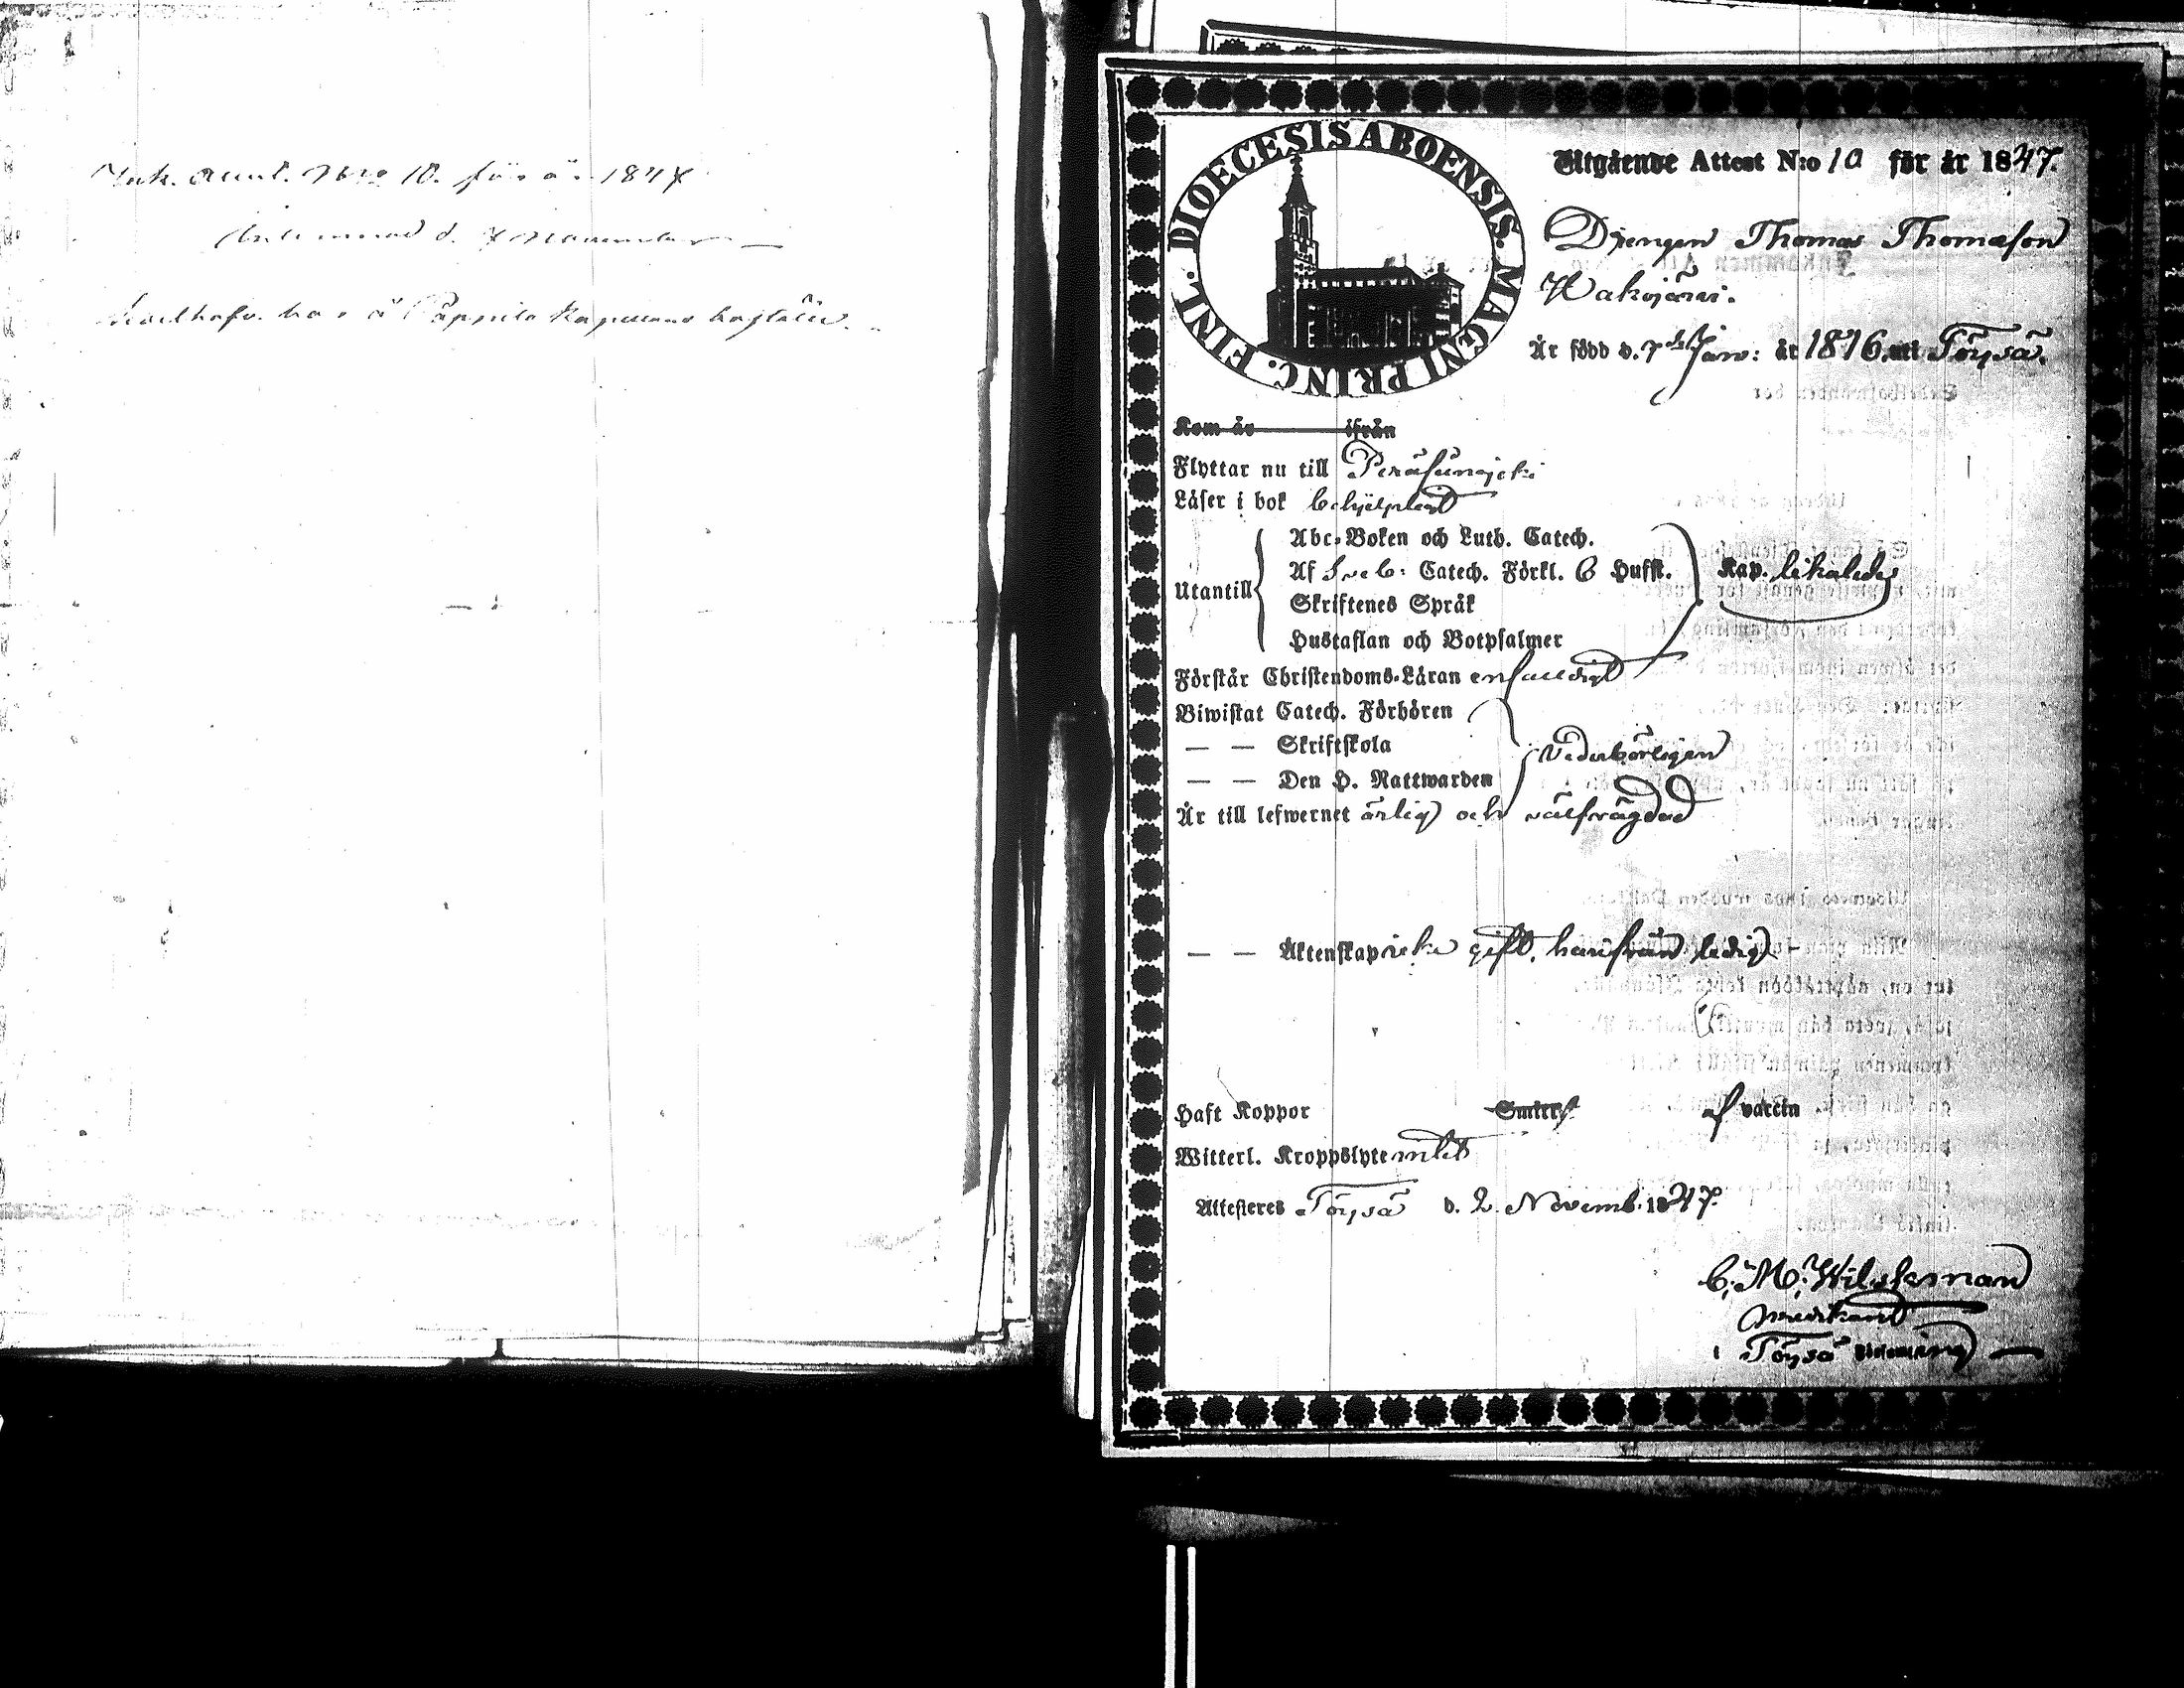 Ink. Attest. No 10. för år 1847
November
Päppilä Kapellans
DIOECESIS ABOENSIS. MAGNI PRINC. FINL.
Utgående Attest N:o 10 för år 1847.
Drengen Thomas Thomasson
Hakojärvi.
Är född d. 7 Janv: år 1816 uti Töysä.
Kom år ifrån
Flyttar nu till Peräseinäjoki
Läser i bok behjelpligt
Abc-Boken och Luth. Catech.
Af Sveb: Catech. Förkl. 6 Hufst. Kap. likaledes
Utantill Skriftenes Språk
Hustaflan och Botpsalmer
Förstår Christendoms-Läran enfaldigt
Biwistat Catech. Förhören
— — Skriftskola Vederbörligen
— — Den H. Nattwarden
Är till lefwernet ärlig och välfrägdad
— — Äktenskap icke gift, härifrån ledig —
Haft Koppor Smitt af vaccin
Witterl. Kroppslyte intet
Attesteres Töysä d. 2 Novemb. 1847.
C. M. Wilskman
Predikant
i Töysä